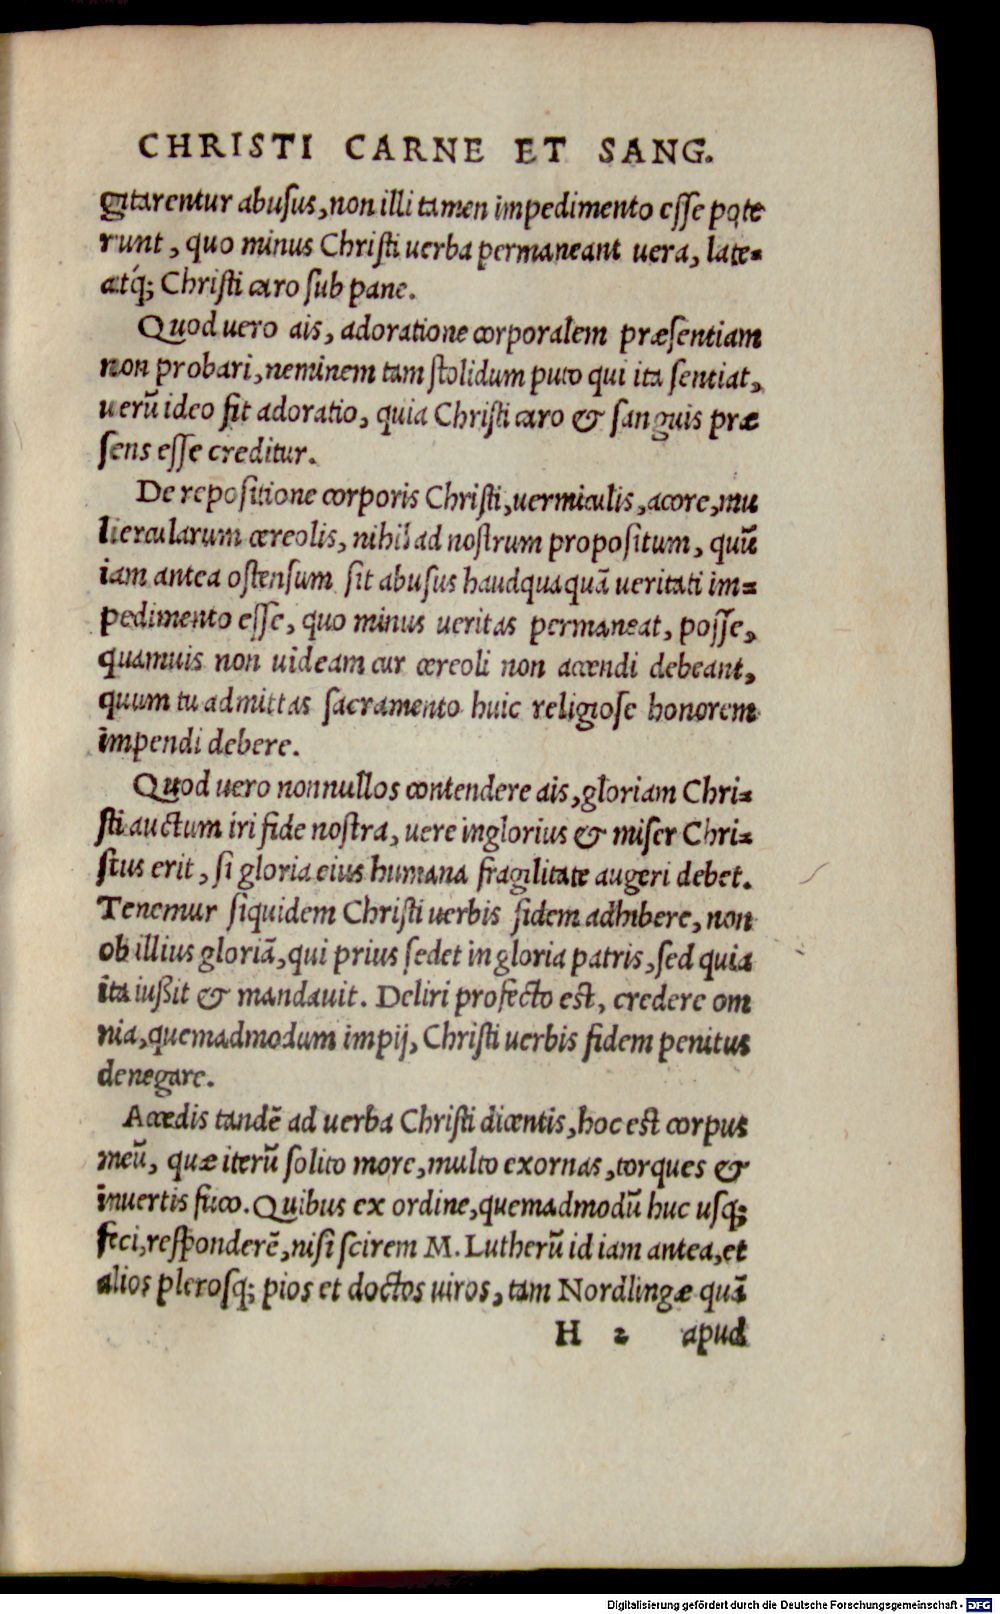 CHRISTI CARNE ET SANG.
gitarentur abusus, non illi tamen impedimento esse pote
runt, quo minus Christi uerba permaneant uera, late-
atq́; Christi caro sub pane.
Quod uero ais, adoratione corporalem præsentiam
non probari, neminem tam stolidum puto qui ita sentiat,
uerũ ideo fit adoratio, quia Christi caro & sanguis præ
sens esse creditur.
De repositione corporis Christi, uermiculis, acore, mu
liercularum cereolis, nihil ad nostrum propositum, quũ
iam antea ostensum sit abusus haudquaquã ueritati im-
pedimento esse, quo minus ueritas permaneat, posse,
quamuis non uideam cur cereoli non accendi debeant,
quum tu admittas sacramento huic religiose honorem
impendi debere.
Quod uero nonnullos contendere ais, gloriam Chri-
sti auctum iri fide nostra, uere inglorius & miser Chri-
stus erit, si gloria eius humana fragilitate augeri debet.
Tenemur siquidem Christi uerbis fidem adhibere, non
ob illius gloriã, qui prius sedet in gloria patris, sed quia
ita iußit & mandauit. Deliri profecto est, credere om
nia, quemadmodum impij, Christi uerbis fidem penitus
denegare.
Accedis tandẽ ad uerba Christi dicentis, hoc est corpus
meũ, quæ iterũ solito more, multo exornas, torques &
inuertis fuco. Quibus ex ordine, quemadmodũ huc usq;
feci, responderẽ, nisi scirem M. Lutherũ id iam antea, et
alios plerosq; pios et doctos uiros, tam Nordlingæ quã
H 2 apud
Digitalisierung gefördert durch die Deutsche Forschungsgemeinschaft - DFG